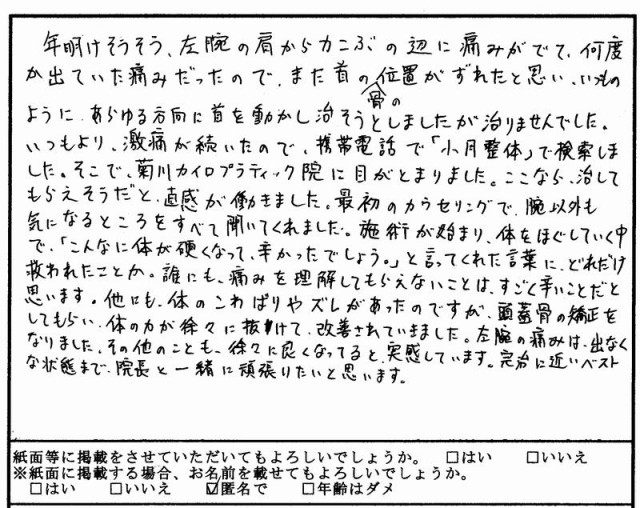 年明けそうそう、左腕の肩から力こぶの辺に痛みがでて、何度
か出ていた痛みだったので、また首の骨の位置がずれたと思い、いつもの
ように、あらゆる方向に首を動かし治そうとしましたが治りませんでした。
いつもより、激痛が続いたので、携帯電話で「小月整体」で検索しま
した。そこで、菊川カイロプラティック院に目がとまりました。ここなら、治して
もらえそうだと、直感が働きました。最初のカウセリングで、腕以外も
気になるところをすべて聞いてくれました。施術が始まり、体をほぐしていく中
で、「こんなに体が硬くなって、辛かったでしょう。」と言ってくれた言葉に、どれだけ
救われたことか。誰にも、痛みを理解してもらえないことは、すごく辛いことだと
思います。他にも、体のこわばりやズレがあったのですが、頭蓋骨の矯正を
してもらい、体の力が徐々に抜けて、改善されていきました。左腕の痛みは、出なく
なりました。その他のことも、徐々に良くなってると、実感しています。完治に近いベスト
な状態まで、院長と一緒に頑張りたいと思います。
紙面等に掲載をさせていただいてもよろしいでしょうか。 □はい □いいえ
※紙面に掲載する場合、お名前を載せてもよろしいでしょうか。
□はい □いいえ ☑匿名で □年齢はダメ